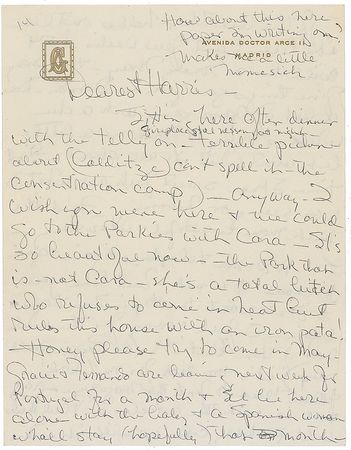 1)
How about this here
paper I'm writing on?
AVENIDA DOCTOR ARCE 11
MADRID
Makes me a little
homesick
G
Dearest Harris –
Sitten here after dinner
with the telly on – terrible picture
fireplace still necessary at night –
about (Colditz – can't spell it – the
consentration camp) – anyway – I
wish you were here & we could
go to the Parkies with Cara – It's
so beautiful now – the Park that
is – not Cara – she's a total bitch
who refuses to come in heat but
rules this house with an iron pata!
– Honey please try to come in May –
Gracie & Fernando are leaving next week for
Portugal for a month & I'll be here
alone with the baby & a Spanish woman
whall stay (hopefully) that month –